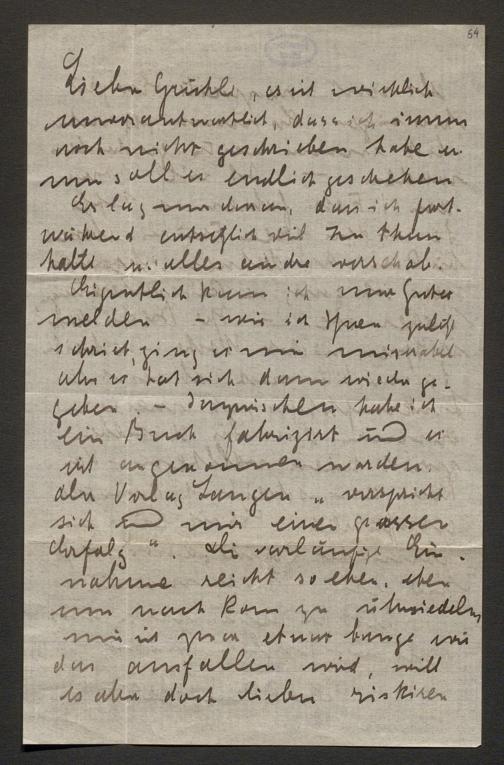 59
Lieber Gruhle, es ist wirklich
unverantwortlich, dass ich immer
noch nicht geschrieben habe u
nun soll es endlich geschehen
Es lag nur daran, dass ich fort-
während entsetzlich viel zu thun
hatte u. alles andre verschob.
Eigentlich kann ich nur Gutes
melden – wie ich Ihnen zuletzt
schrieb, ging es mir miserabel
aber es hat sich dann wieder ge-
geben. – Inzwischen habe ich
ein Buch fabriziert und es
ist angenommen worden.
der Verlag Langen „ verspricht
sich und mir einen grossen
Erfolg “. Die vorläufige Ein-
nahme reicht so eben, eben
um nach Rom zu übersiedeln,
mir ist zwar etwas bange wie
das ausfallen wird, will
es aber doch lieber riskiren